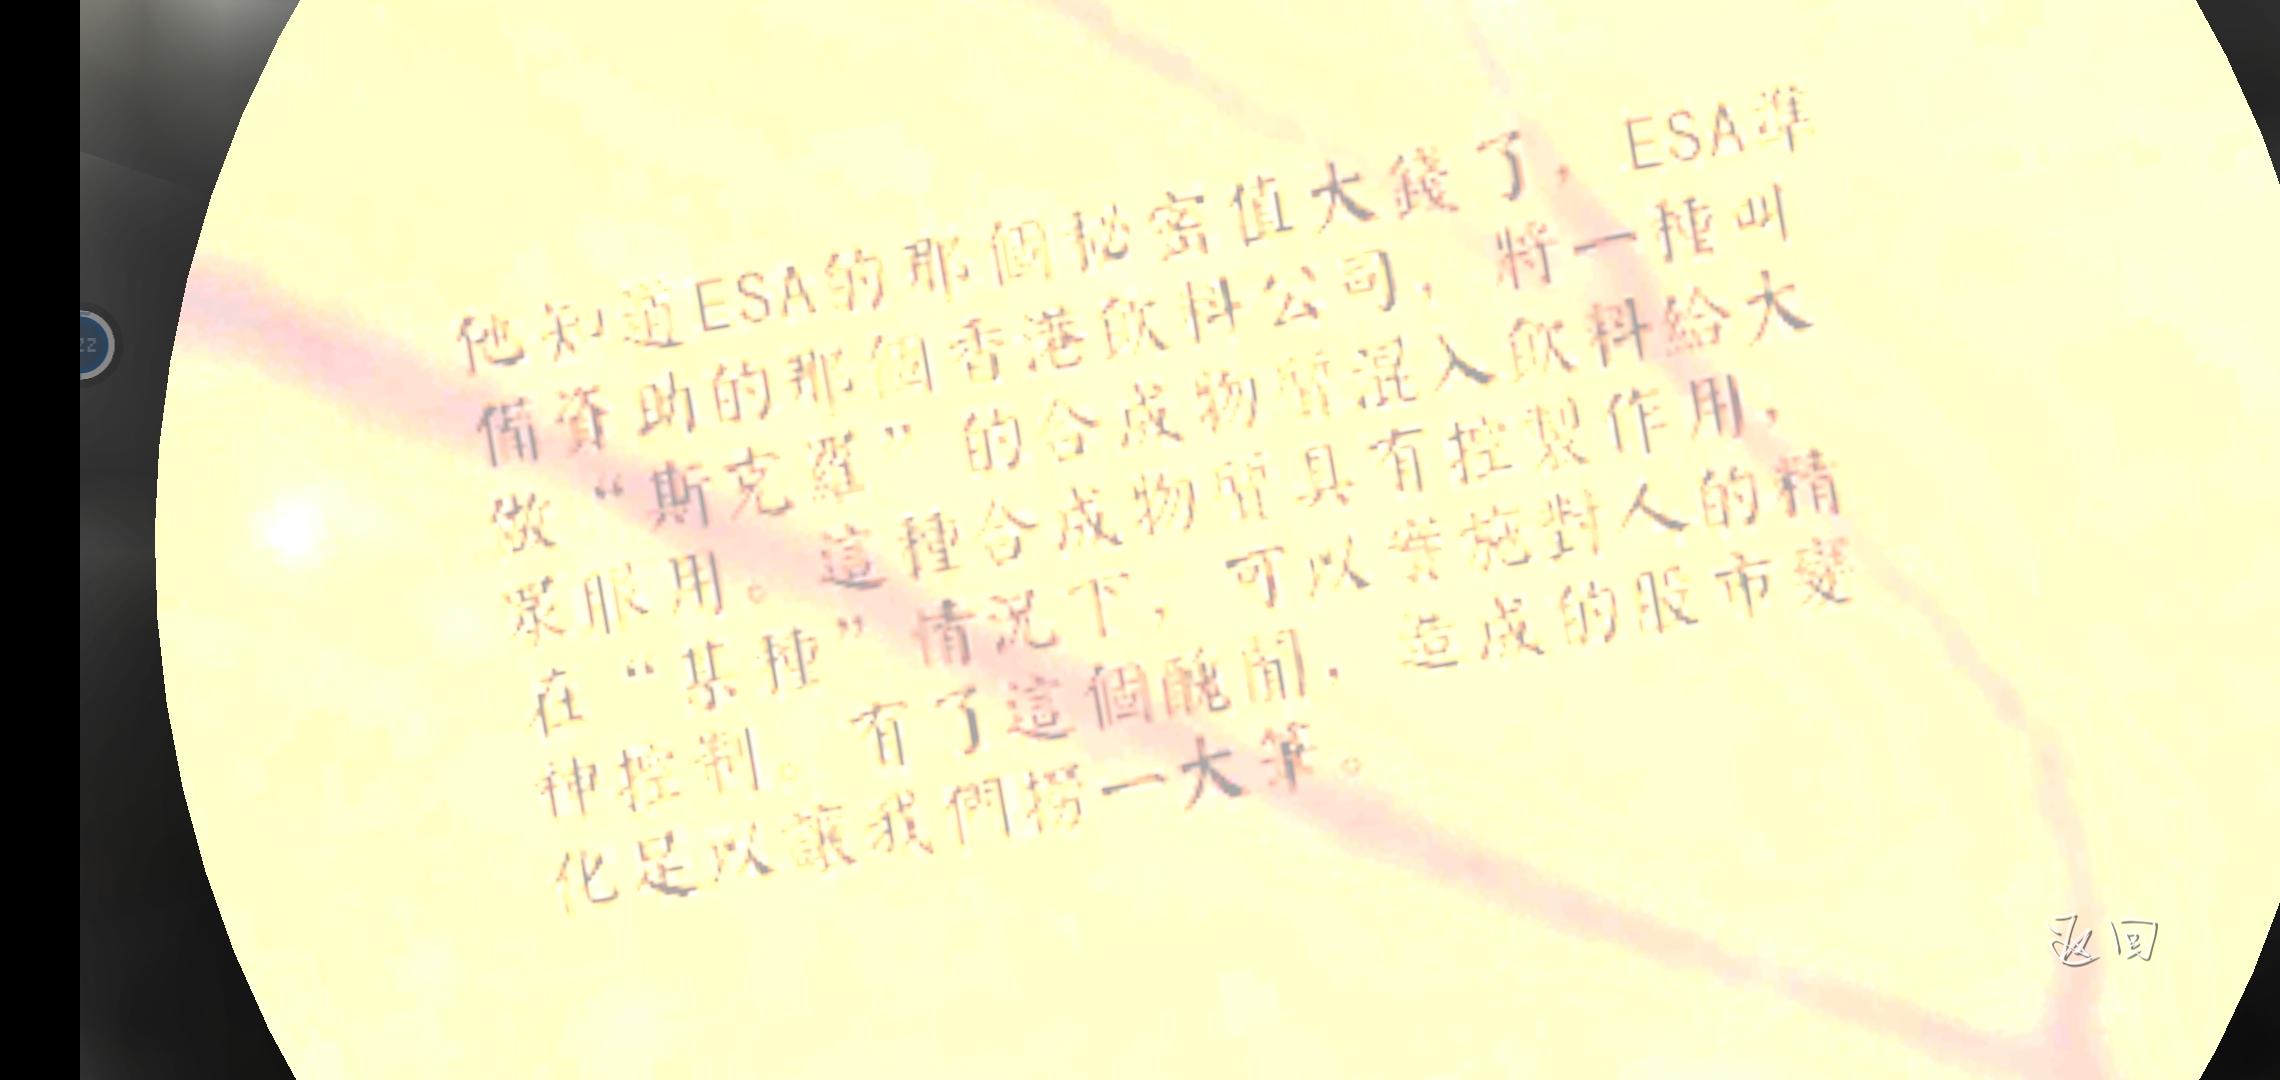 他知道ESA的那個秘密值大錢了，ESA準
備資助的那個香港飲料公司，將一種叫
做“斯克羅”的合成物質混入飲料給大
眾服用。這種合成物質具有控製作用，
在“某種”情況下，可以實施對人的精
神控制。有了這個醜聞，造成的股市變
化足以讓我們撈一大筆。
返回